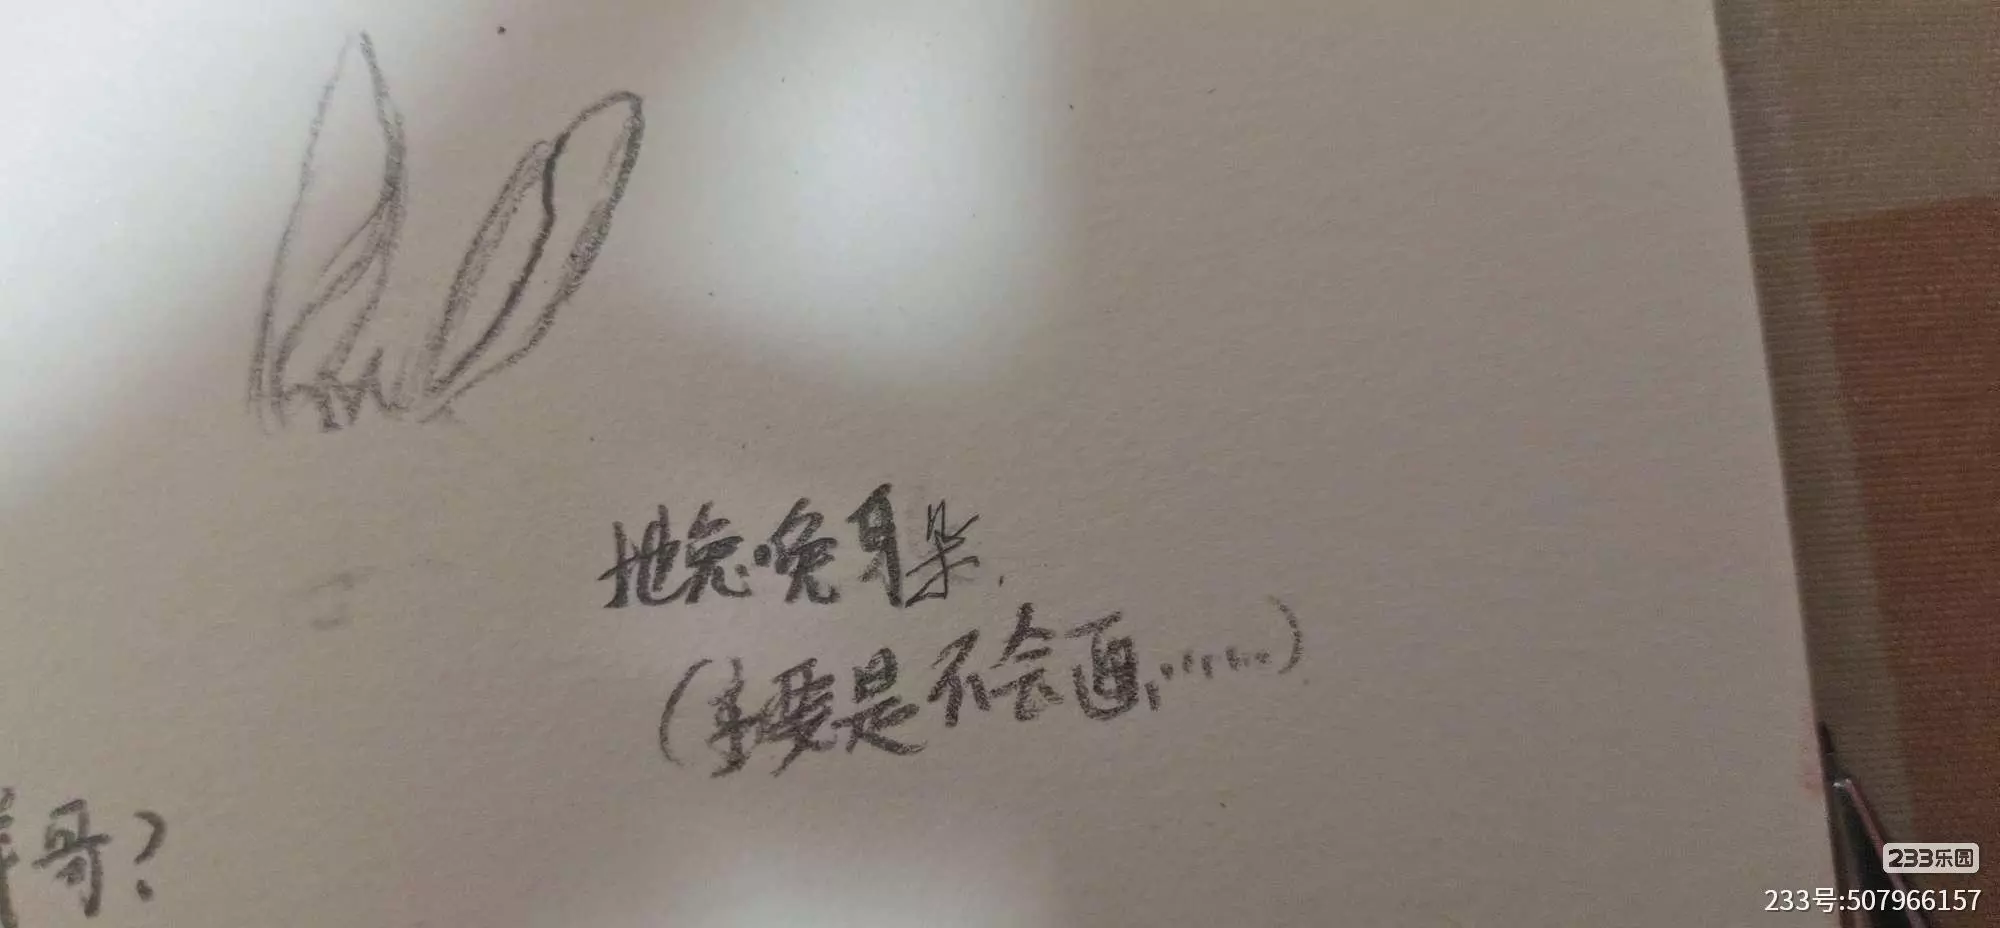 兔兔耳朵.
(主要是不会画......)
哥?
233乐园
233号:507966157